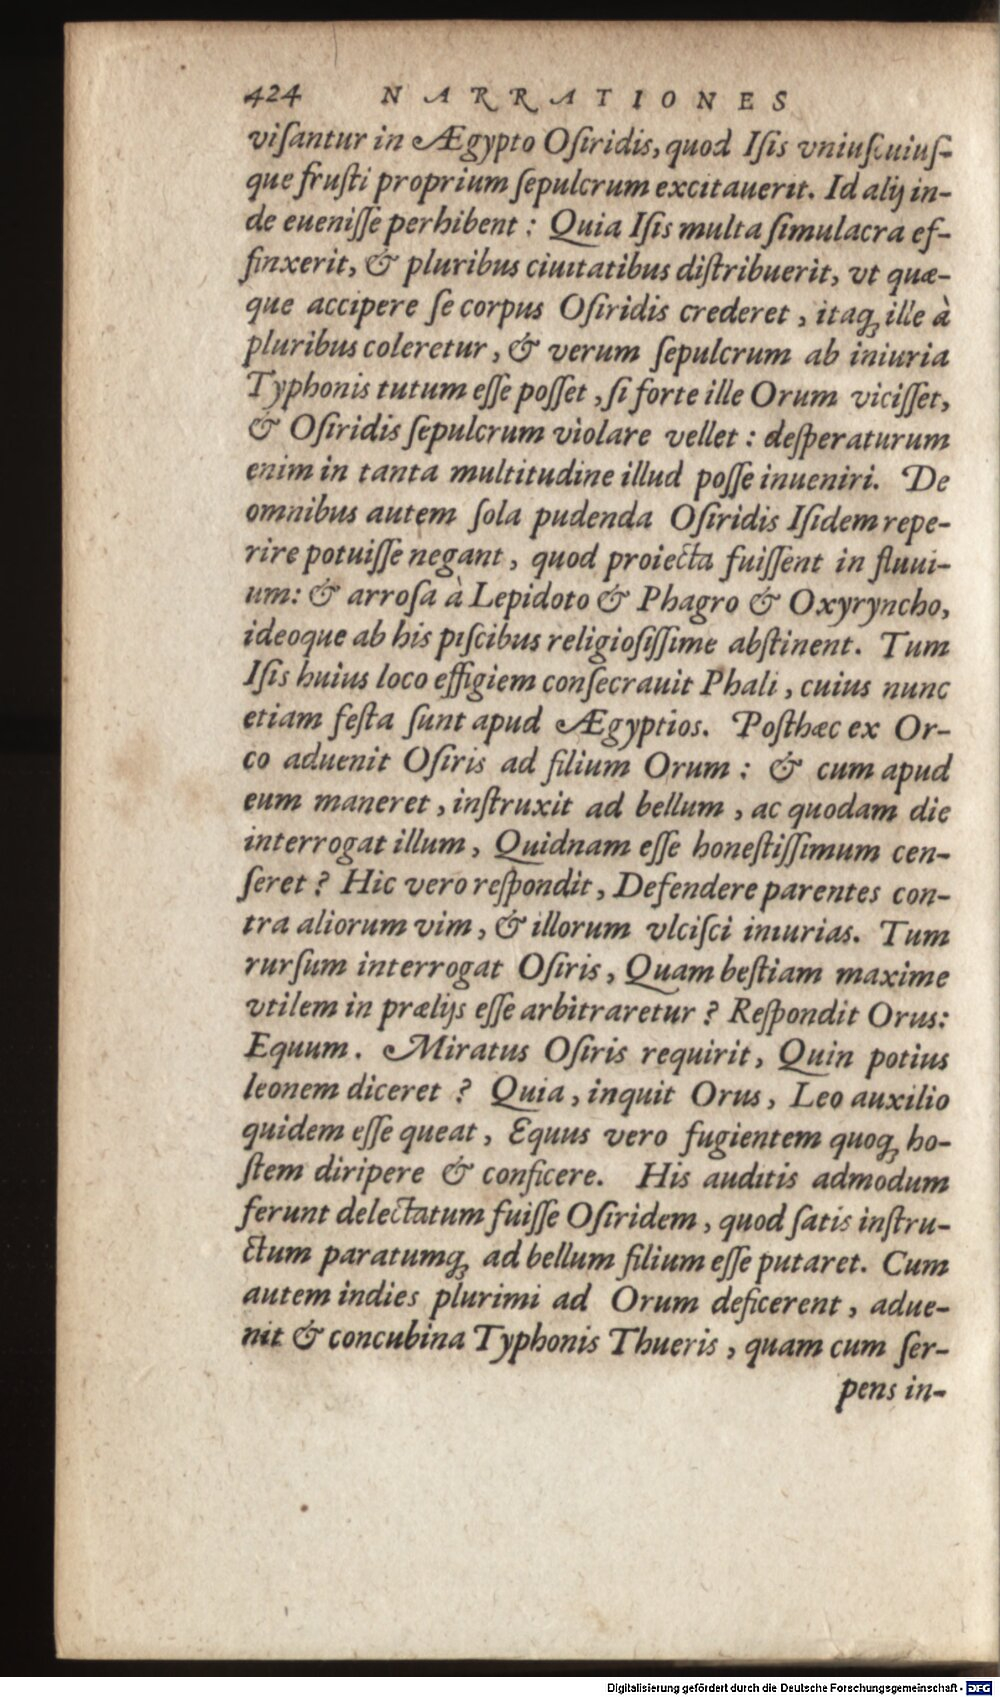 424 NARRATIONES
viſantur in Ægypto Oſiridis, quod Iſis vniuſcuiuſ-
que fruſti proprium ſepulcrum excitauerit. Id alij in-
de eueniſſe perhibent : Quia Iſis multa ſimulacra ef-
finxerit, & pluribus ciuitatibus diſtribuerit, vt quæ-
que accipere ſe corpus Oſiridis crederet, itaq; ille à
pluribus coleretur, & verum ſepulcrum ab iniuria
Typhonis tutum eſſe poſſet, ſi forte ille Orum viciſſet,
& Oſiridis ſepulcrum violare vellet : deſperaturum
enim in tanta multitudine illud poſſe inueniri. De
omnibus autem ſola pudenda Oſiridis Iſidem repe-
rire potuiſſe negant, quod proiecta fuiſſent in fluui-
um: & arroſa à Lepidoto & Phagro & Oxyryncho,
ideoque ab his piſcibus religioſiſſime abſtinent. Tum
Iſis huius loco effigiem conſecrauit Phali, cuius nunc
etiam feſta ſunt apud Ægyptios. Poſthæc ex Or-
co aduenit Oſiris ad filium Orum : & cum apud
eum maneret, inſtruxit ad bellum, ac quodam die
interrogat illum, Quidnam eſſe honeſtiſſimum cen-
ſeret ? Hic vero reſpondit, Defendere parentes con-
tra aliorum vim, & illorum vlciſci iniurias. Tum
rurſum interrogat Oſiris, Quam beſtiam maxime
vtilem in prælijs eſſe arbitraretur ? Reſpondit Orus:
Equum. Miratus Oſiris requirit, Quin potius
leonem diceret ? Quia, inquit Orus, Leo auxilio
quidem eſſe queat, Equus vero fugientem quoq; ho-
ſtem diripere & conficere. His auditis admodum
ferunt delectatum fuiſſe Oſiridem, quod ſatis inſtru-
ctum paratumq; ad bellum filium eſſe putaret. Cum
autem indies plurimi ad Orum deficerent, adue-
nit & concubina Typhonis Thueris, quam cum ſer-
pens in-
Digitalisierung gefördert durch die Deutsche Forschungsgemeinschaft - DFG